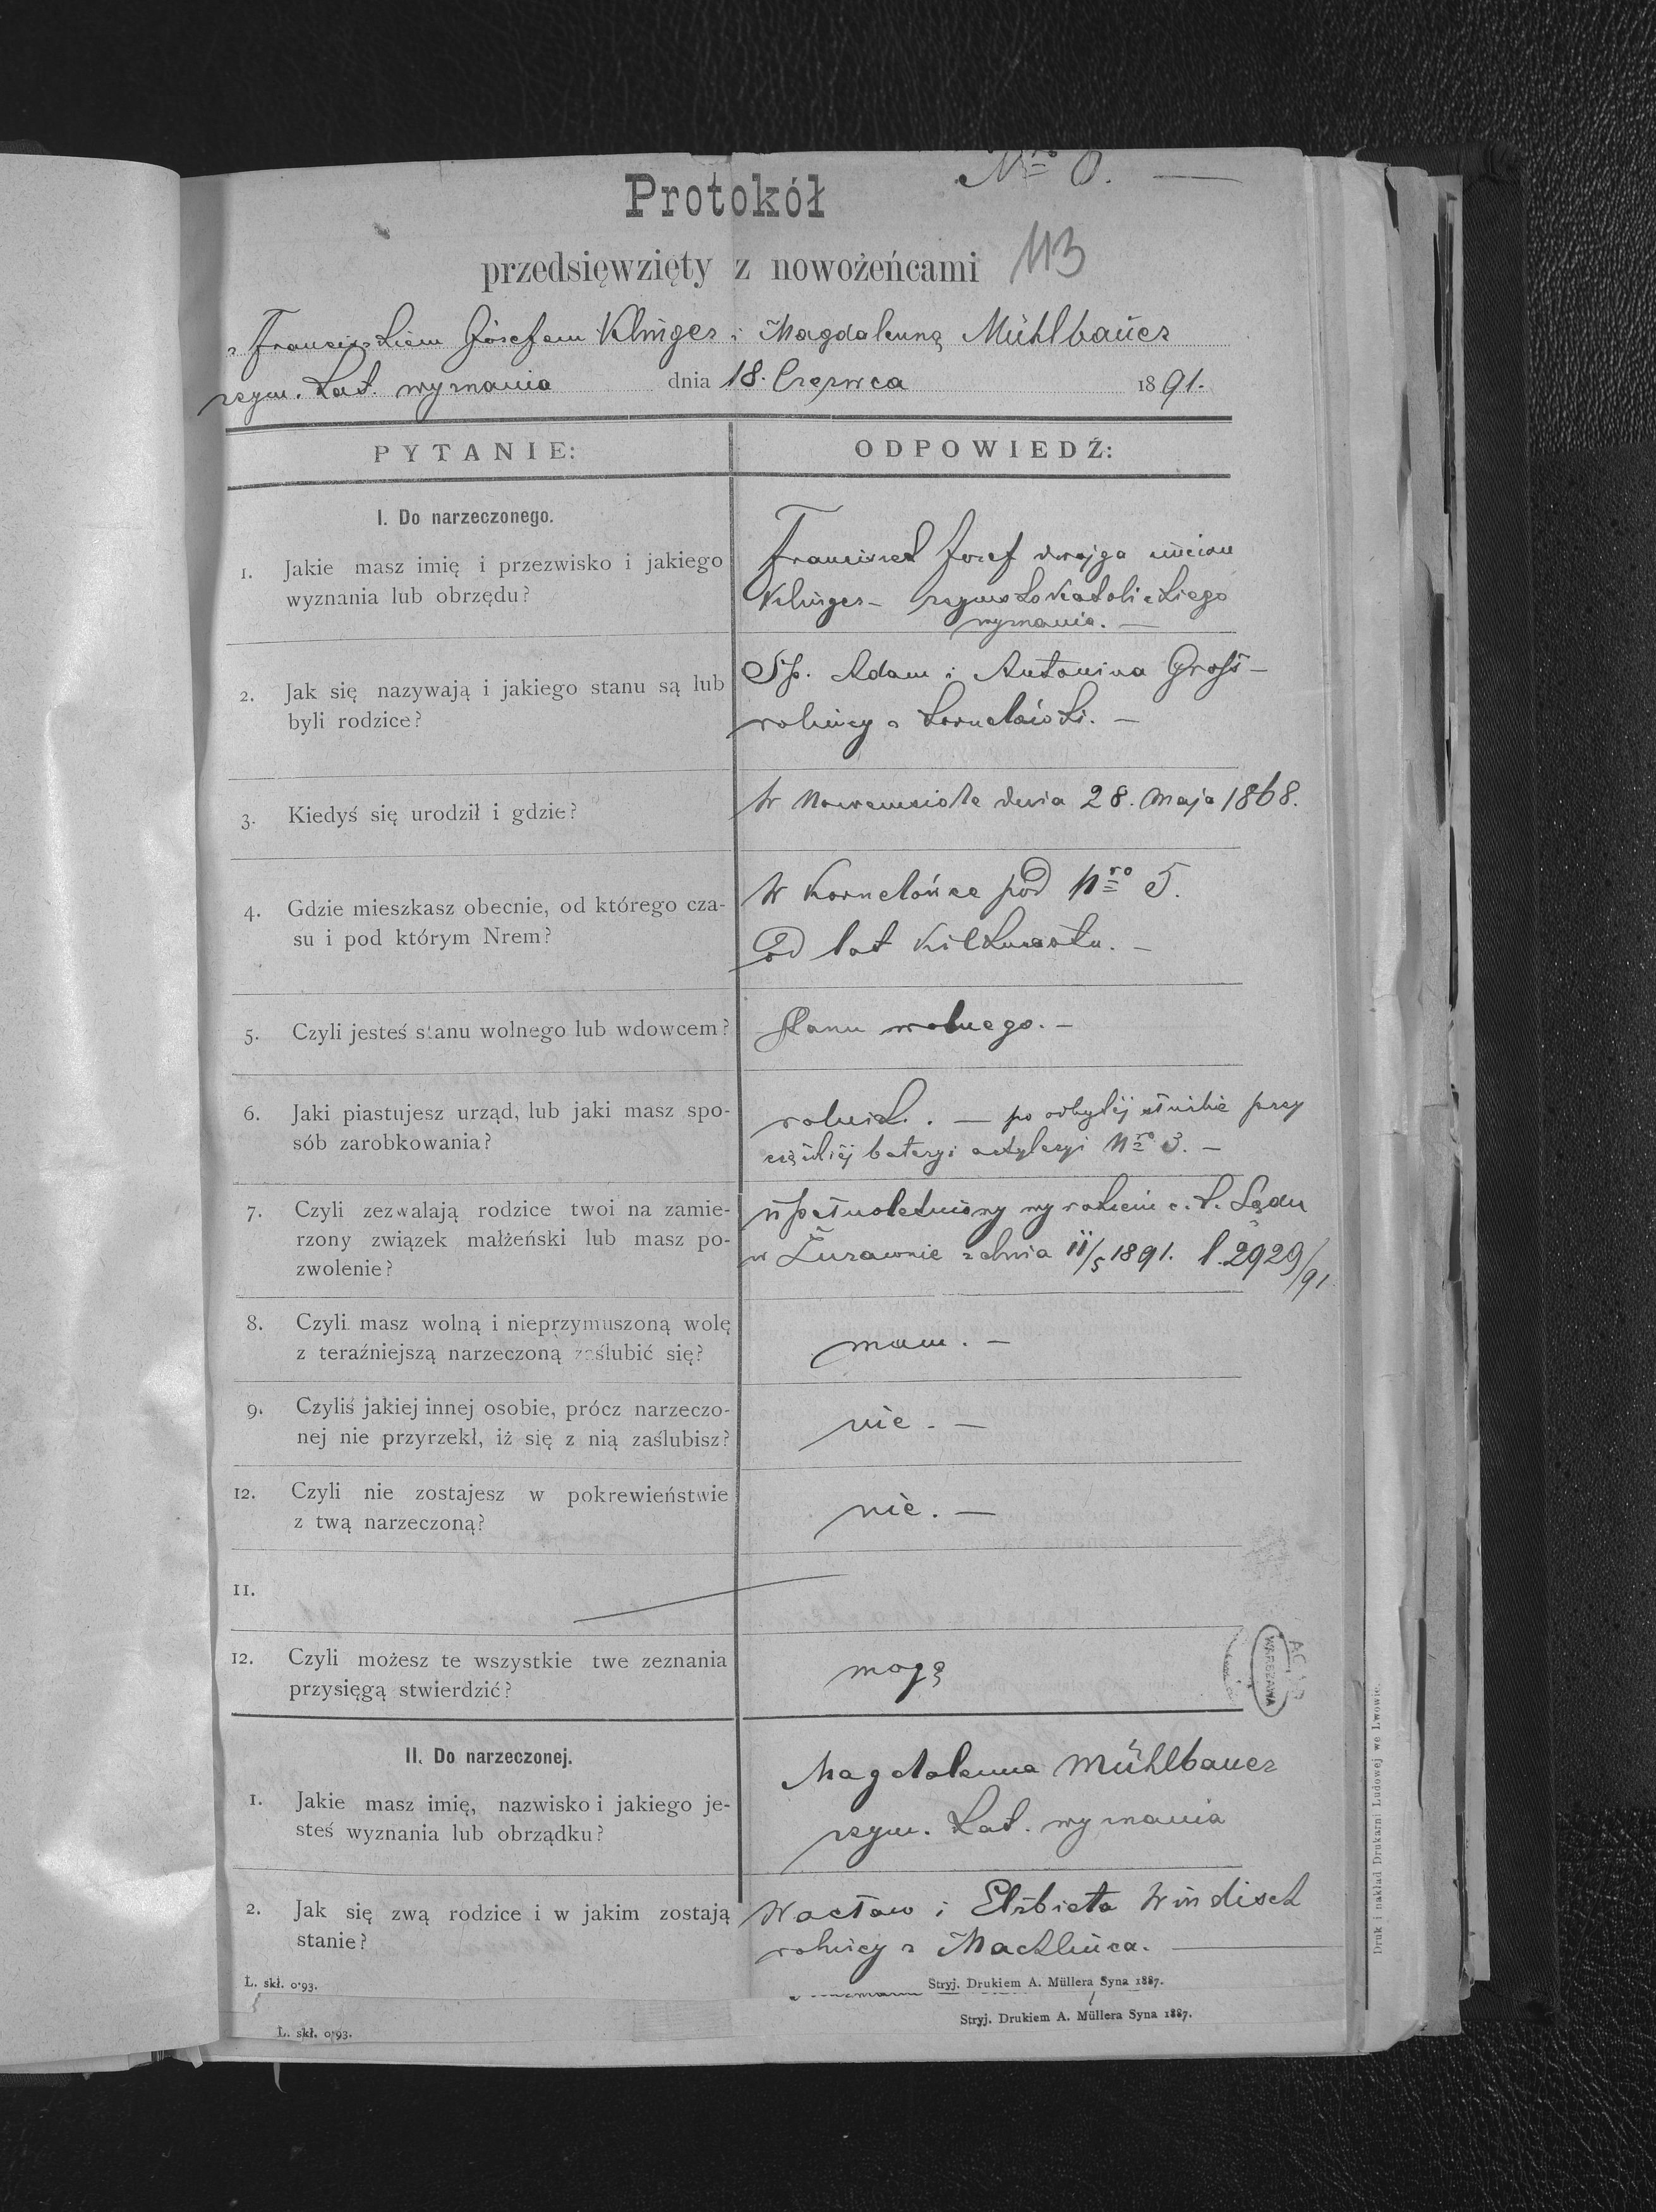 Nro 0. —
Protokół
przedsięwzięty z nowożeńcami 113
z Franciszkiem Józefem Klinger i Magdalenną Mühlbauer
rzym. kat. wyznania dnia 18. Czerwca 1891.
PYTANIE: ODPOWIEDŹ:
I. Do narzeczonego.
1. Jakie masz imię i przezwisko i jakiego
wyznania lub obrzędu?
Franciszek Józef dwojga imion
Klinger – rzymsko katolickiego
wyznania. —
2. Jak się nazywają i jakiego stanu są lub
byli rodzice?
Śp. Adam i Antonina Groß –
rolnicy z Kornelówki. —
3. Kiedyś się urodził i gdzie?
W Nowemsiole dnia 28. Maja 1868.
4. Gdzie mieszkasz obecnie, od którego cza-
su i pod którym Nrem?
W Kornelówce pod Nro 5.
Od lat kilkunastu. —
5. Czyli jesteś stanu wolnego lub wdowcem?
stanu wolnego. —
6. Jaki piastujesz urząd, lub jaki masz spo-
sób zarobkowania?
rolnik. — po odbytej służbie przy
ciężkiej bateryi artyleryi Nro 3. —
7. Czyli zezwalają rodzice twoi na zamie-
rzony związek małżeński lub masz po-
zwolenie?
upełnoletniony wyrokiem c. k. Sądu
w Żurawnie z dnia 11/5 1891. l. 2929/91
8. Czyli masz wolną i nieprzymuszoną wolę
z teraźniejszą narzeczoną zaślubić się?
mam. —
9. Czyliś jakiej innej osobie, prócz narzeczo-
nej nie przyrzekł, iż się z nią zaślubisz?
nie. —
12. Czyli nie zostajesz w pokrewieństwie
z twą narzeczoną?
nie. —
11.
12. Czyli możesz te wszystkie twe zeznania
przysięgą stwierdzić?
mogę
WARSZAWA
II. Do narzeczonej.
1. Jakie masz imię, nazwisko i jakiego je-
steś wyznania lub obrządku?
Magdalenna Mühlbauer
rzym. kat. wyznania
2. Jak się zwą rodzice i w jakim zostają
stanie?
Wacław i Elżbieta Windisch
rolnicy z Machlińca. —
L. skł. 0·93. Stryj. Drukiem A. Müllera Syna 1887.
L. skł. 0·93. Stryj. Drukiem A. Müllera Syna 1887.
Druk i nakład Drukarni Ludowej we Lwowie.